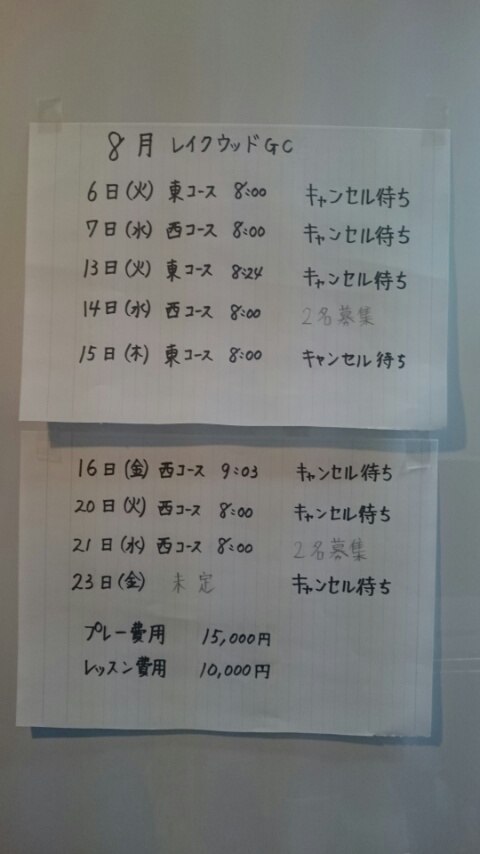 8月 レイクウッドGC
6日(火) 東コース 8:00 キャンセル待ち
7日(水) 西コース 8:00 キャンセル待ち
13日(火) 東コース 8:24 キャンセル待ち
14日(水) 西コース 8:00 2名募集
15日(木) 東コース 8:00 キャンセル待ち
16日(金) 西コース 9:03 キャンセル待ち
20日(火) 西コース 8:00 キャンセル待ち
21日(水) 西コース 8:00 2名募集
23日(金) 未定 キャンセル待ち
プレー費用 15,000円
レッスン費用 10,000円